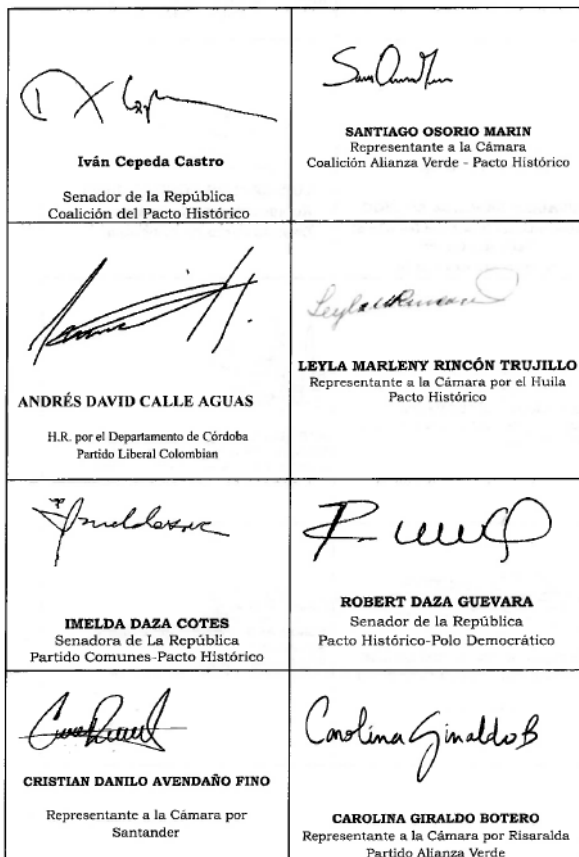 Iván Cepeda Castro
Senador de la República
Coalición del Pacto Histórico
SANTIAGO OSORIO MARIN
Representante a la Cámara
Coalición Alianza Verde - Pacto Histórico
ANDRÉS DAVID CALLE AGUAS
H.R. por el Departamento de Córdoba
Partido Liberal Colombian
LEYLA MARLENY RINCÓN TRUJILLO
Representante a la Cámara por el Huila
Pacto Histórico
IMELDA DAZA COTES
Senadora de La República
Partido Comunes-Pacto Histórico
ROBERT DAZA GUEVARA
Senador de la República
Pacto Histórico-Polo Democrático
CRISTIAN DANILO AVENDAÑO FINO
Representante a la Cámara por
Santander
Carolina Giraldo B
CAROLINA GIRALDO BOTERO
Representante a la Cámara por Risaralda
Partido Alianza Verde